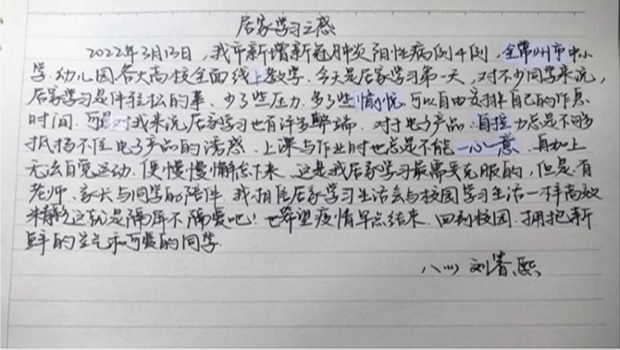 居家学习之感
2022年3月13日，我市新增新冠肺炎阳性病例4例，全常州市中小
学.幼儿园各大高校全面线上教学.今天是居家学习第一天，对不少同学来说，
居家学习是件轻松的事.少了些压力.多了些愉悦.可以自由安排自己的作息
时间.可是对我来说居家学习也有许多弊端.对于电子产品.自控力总是不够
抵挡不住电子产品的诱惑.上课与作业时也总是不能一心一意.再加上
无法自觉运动.便慢慢懈怠下来.这是我居家学习最需要克服的，但是.有
老师.家长与同学的陪伴.我相信居家学习生活会与校园学习生活一样高效
精彩这就是隔屏不隔爱吧！也希望疫情早点结束.回到校园.拥抱新
鲜的空气和可爱的同学.
八(1) 刘睿熙